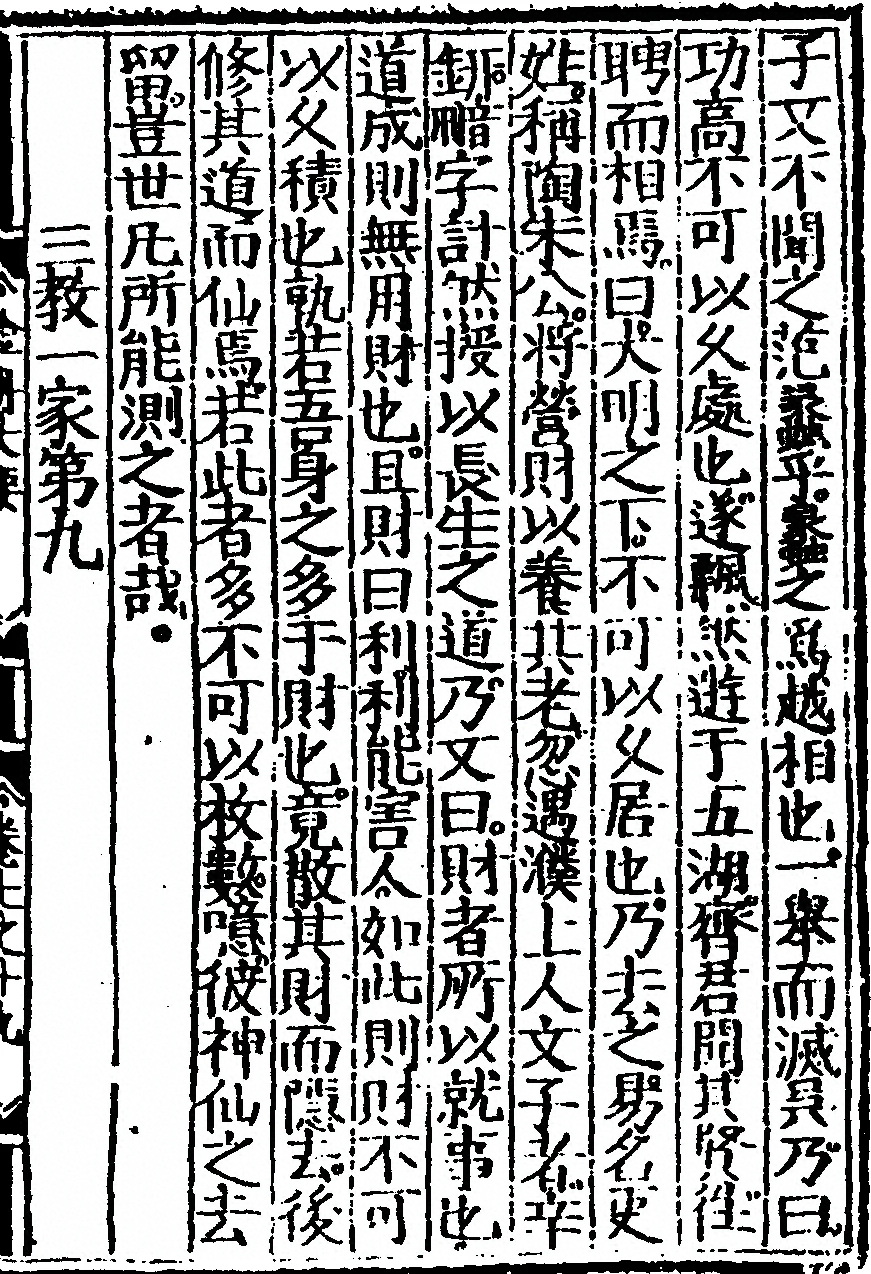 子又不聞之范蠡乎蠡之為越相也一舉而滅吳乃曰
功高不可以久處也遂飄然遊于五湖齊君聞其賢徃
聘而相焉曰大明之下不可以久居也乃去之易名更
姓稱陶朱公將營財以養其老忽遇濮上人文子者辛
鈃暗字計然授以長生之道乃文曰財者所以就事也
道成則無用財也且財曰利利能害人如此則財不可
以久積也孰若吾身之多于財也竟散其財而隱去後
修其道而仙焉若此者多不可以枚數噫彼神仙之去
留豈世凡所能測之者哉
三教一家第九
卷七之十九